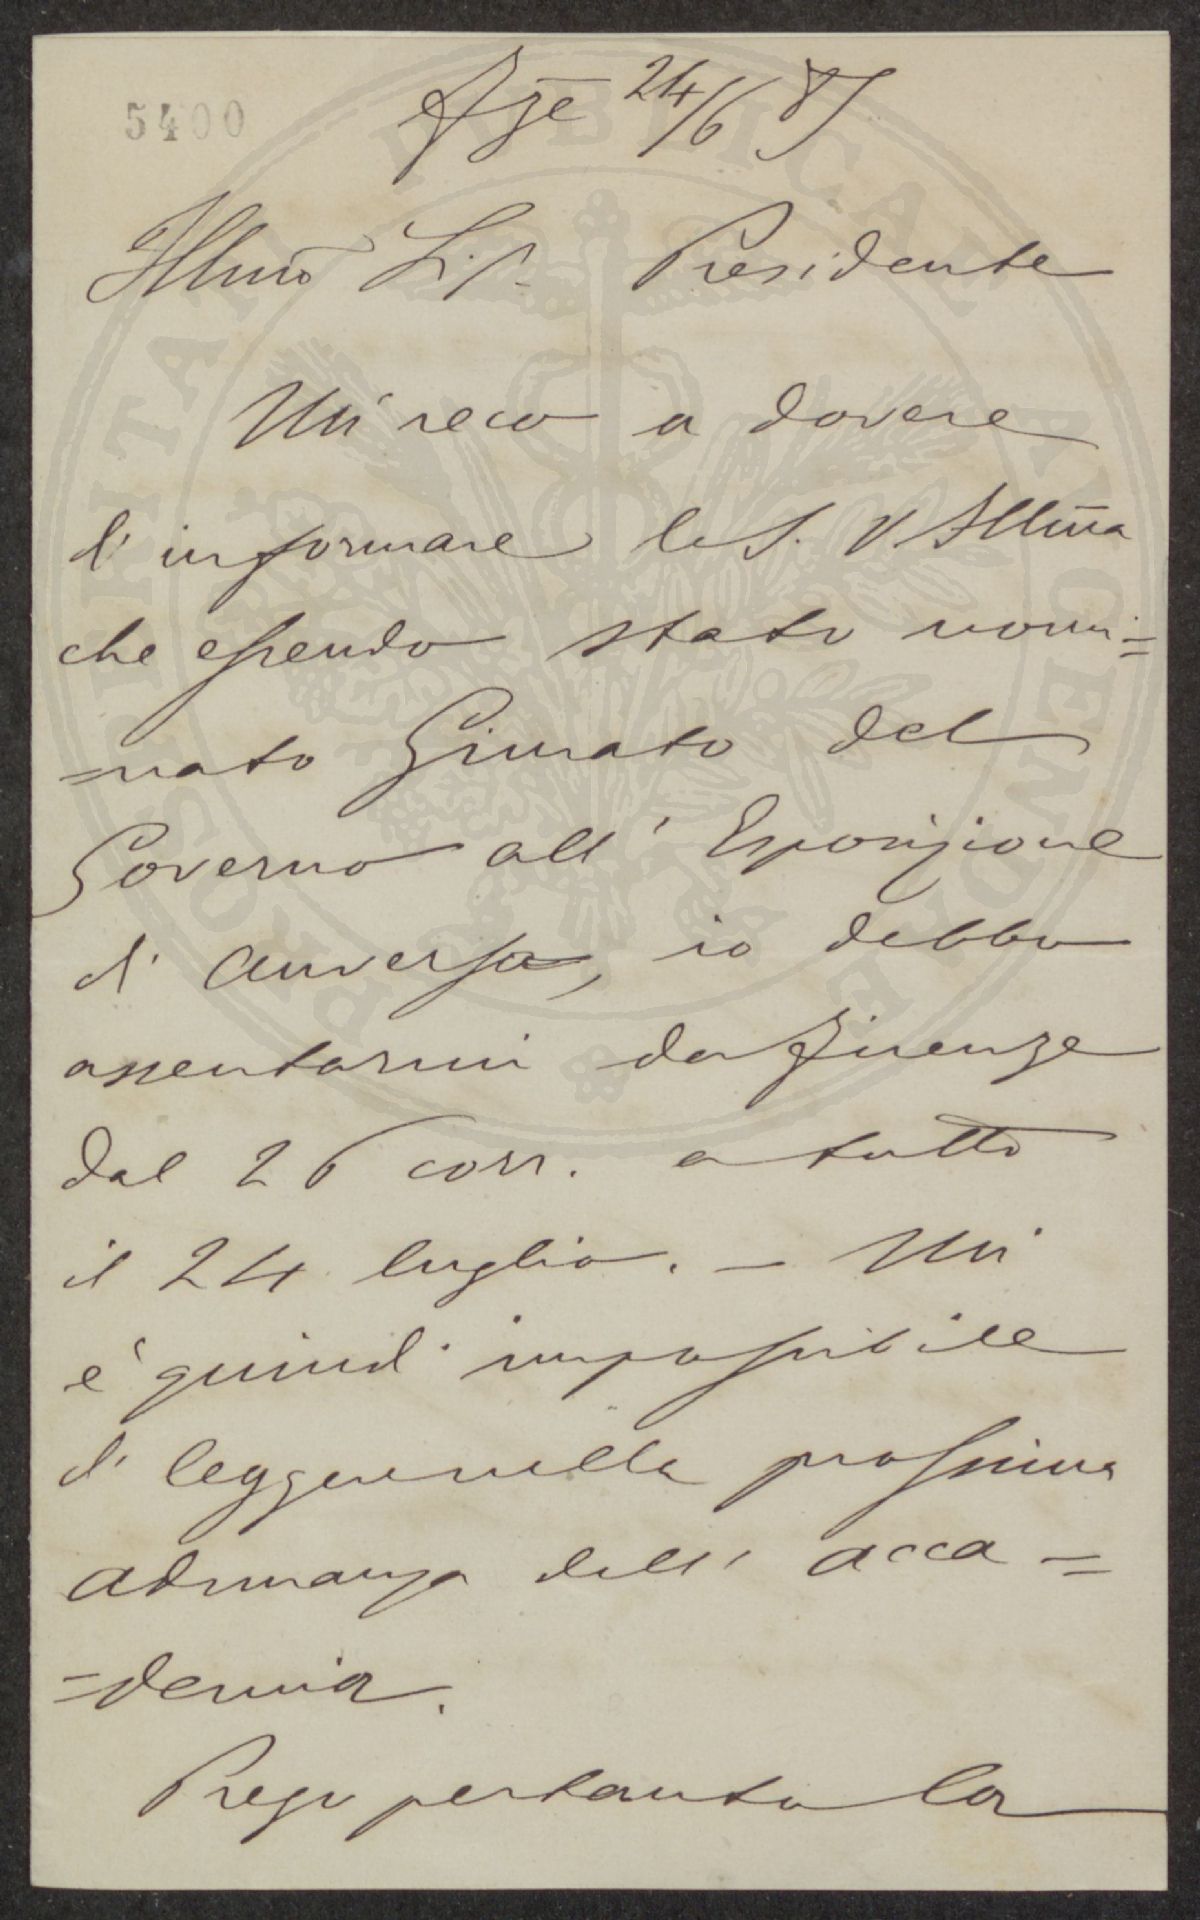 5400
Fze 24/6 85
Illmo Sig. Presidente
Mi reco a dovere
d'informare la S. V. Illma
che essendo stato nomi=
=nato Giurato del
Governo all' Esposizione
d' Anversa, io debbo
assentarmi da Firenze
dal 26 corr. a tutto
il 24 luglio. – Mi
è quindi impossibile
di leggere nella prossima
adunanza dell' acca=
=demia.
Prego pertanto la
PROSPERITATI PUBLICAE AUGENDAE